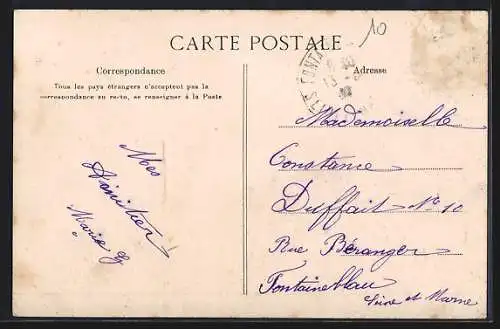 10
CARTE POSTALE
Correspondance
Adresse
Tous les pays étrangers n'acceptent pas la
correspondance au recto, se renseigner à la Poste
Mes
Amitiés
Marie G
Mademoiselle
Constance
Duffait No 10
Rue Béranger
Fontainebleau
Seine et Marne